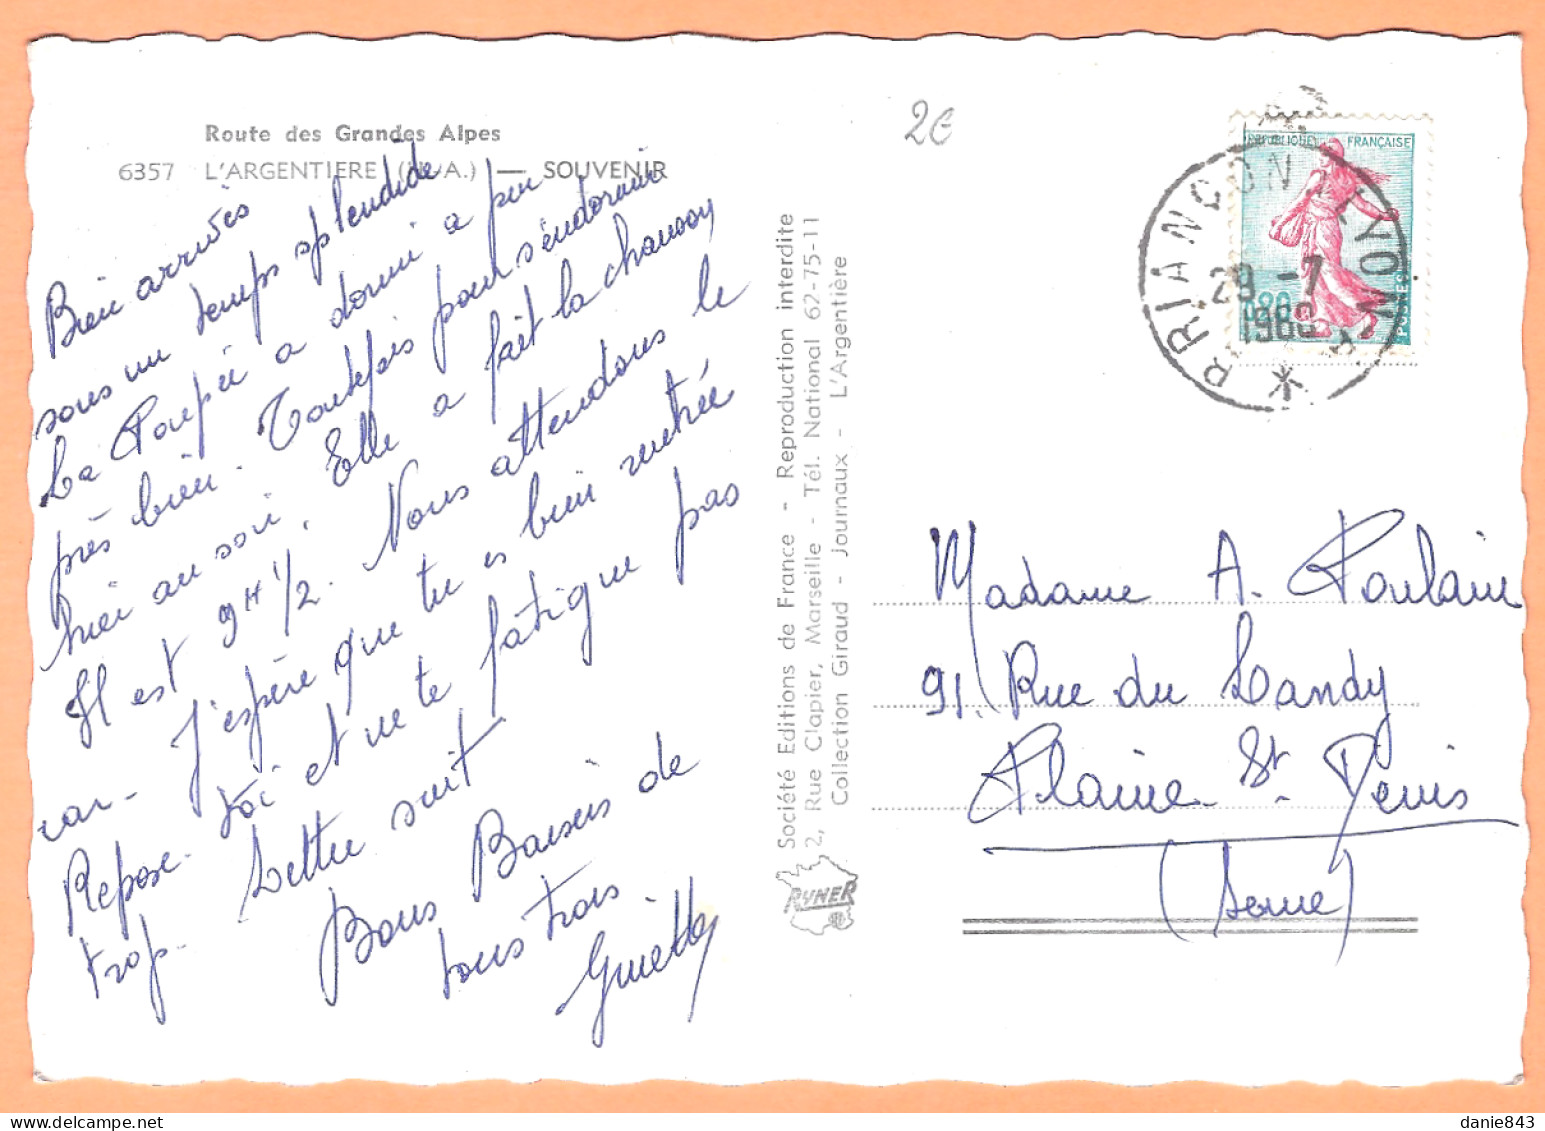 Route des Grandes Alpes
6357 L'ARGENTIERE (H.-A.) — SOUVENIR
Bien arrivés
sous un temps splendide
La Poupée a dormi a peu
près bien. Toutefois pour s'endormir
hier au soir. Elle a fait la chanson
Il est 9H 1/2. Nous attendons le
car. J'espère que tu es bien rentrée
Repose toi et ne te fatigue pas
trop. Lettre suit
Bons Baisers de
tous trois
Ginette
Société Editions de France - Reproduction interdite
2, Rue Clapier, Marseille - Tél. National 62-75-11
Collection Giraud - Journaux - L'Argentière
RYNER
2€
REPUBLIQUE FRANÇAISE
0,20
POSTES
BRIANCON
29 -7
1960
*
Madame A. Poulain
91. Rue du Landy
Plaine St. Denis
(Seine)
danie843